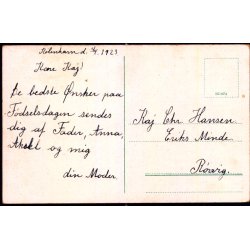 København d. 2/4 1923
Kære Kaj!
De bedste Ønsker paa
Fødselsdagen sendes
dig af Fader, Anna,
Aksel og mig
din Moder.
Kaj Chr Hansen
Eriks Minde
Rørvig.